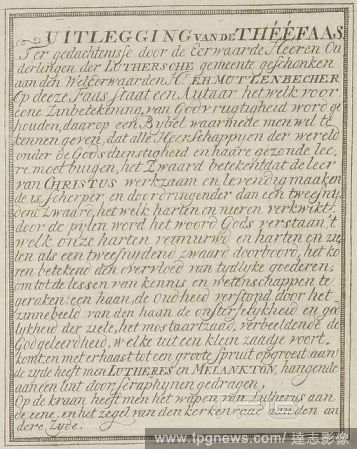 UITLEGGING VAN DE THÉÉFAAS,
Ter gedachtenisse door de Eerwaarde Heeren Ou
derlingen der LUTHERSCHE gemeente geschonken
aan den WelEerwaarden Hr. EH MUTTENBECHER
Op deeze Faas staat een Autaar het welk voor
eene Zinbetekening van Godvrugtigheid word ge
houden, daar op een Bybel waar mede men wil te
kennen geven, dat alle Heerschappyen der wereld
onder de Gods dienstigheid en haare gezonde lee,
re moet buigen, het Zwaard betekent dat de leer
van CHRISTUS werkzaam en levendig maaken
de is, scherper en doordringender dan een tweesny
dend Zwaard, het welk harten en nieren verkwikt
door de pylen word het woord Gods verstaan 't
welk onze harten vermurwd en harten en zie
len als een tweesnydend zwaard doorboord, het ko
ren betekend den overvloed van tydlyke goederen,
om tot de lessen van kennis en wetenschappen te
geraken. een haan, de Oudheid verstond door het
zinnebeeld van den haan de onsterfelykheid en god
lykheid der ziele, het mostaartzaad, verbeeldende de
Godgeleerdheid, welke uit een klein zaadje voort.
komt, en met er haast tot een groote spruit opgroeit aan
de zyde heeft men LUTHERUS en MELANKTON, hangende
aan een lint door seraphynen gedragen,
Op de kraan heeft men het wapen van Lutherus aan
de eene, en het zegel van den kerkenraad aan den an
dere Zyde.
www.tpgnews.com / 達志影像